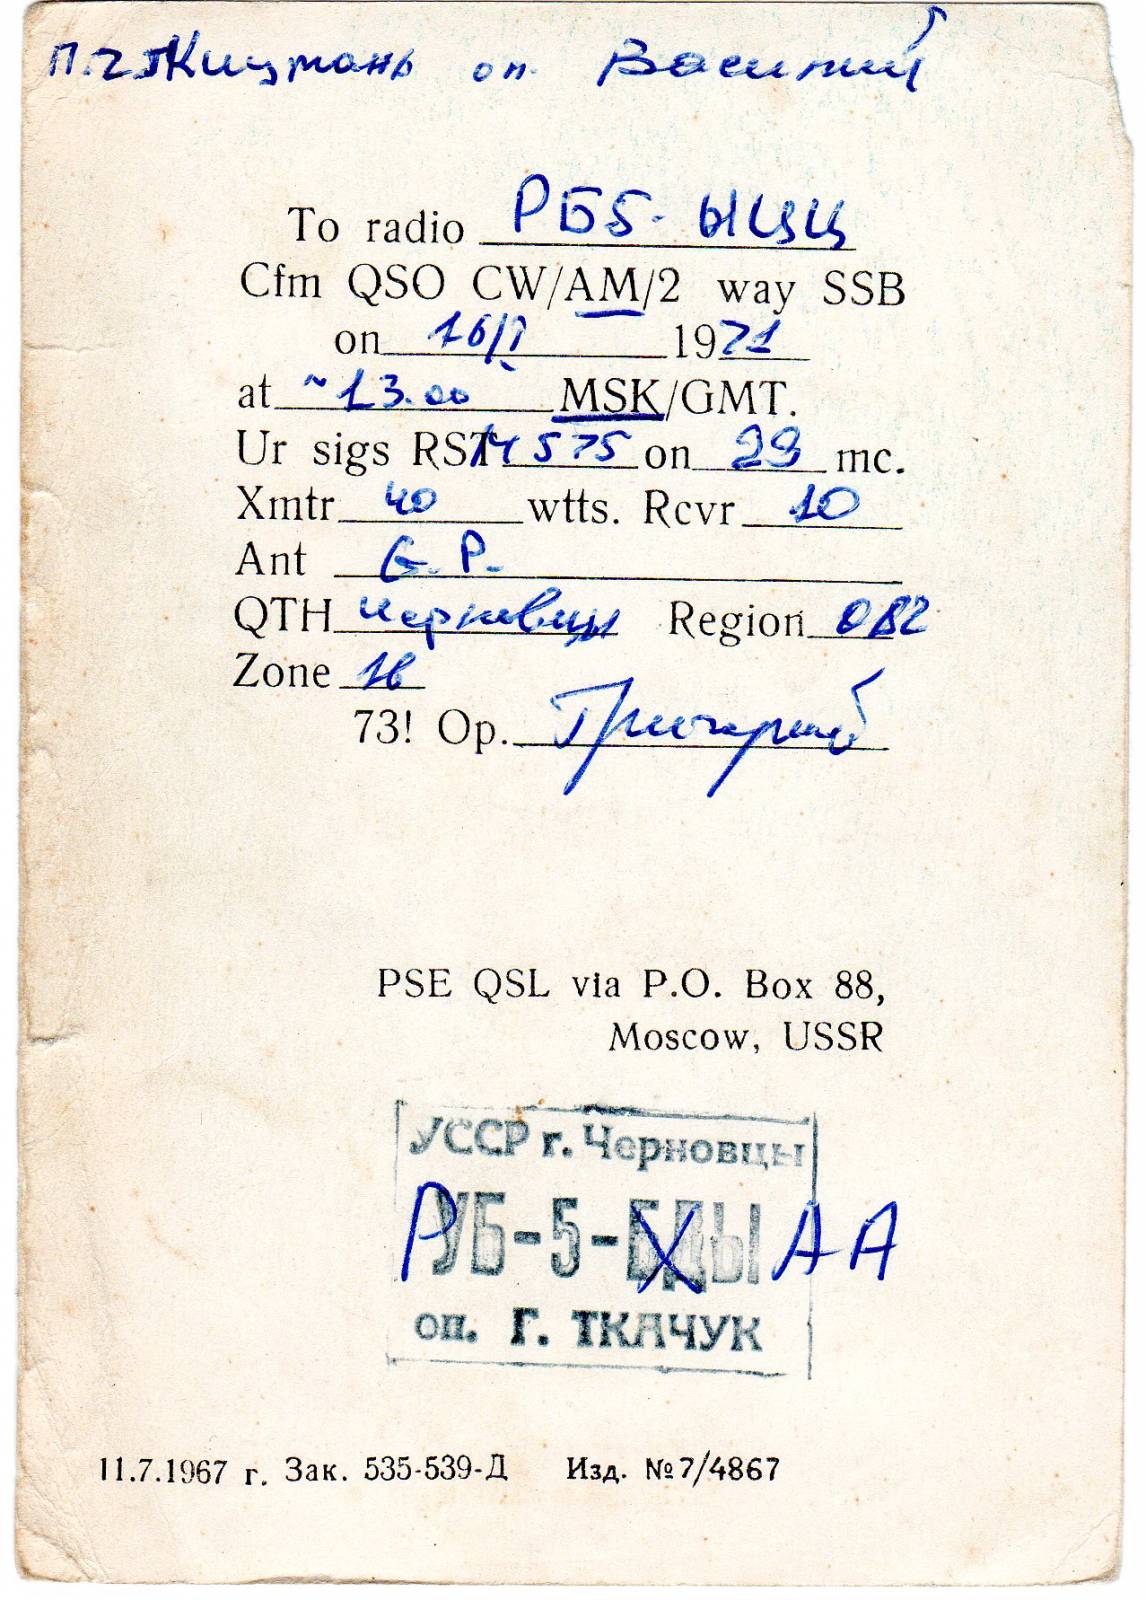 п.г.т Кицмань оп. Василий
To radio РБ5-ЫЦЦ
Cfm QSO CW/AM/2 way SSB
on 16/I 1971
at ~13.00 MSK/GMT.
Ur sigs RST 575 on 29 mc.
Xmtr 40 wtts. Rcvr 10
Ant G.P.
QTH Черновцы Region 082
Zone 16
73! Op. Григорий
PSE QSL via P.O. Box 88,
Moscow, USSR
УССР г. Черновцы
РУБ-5-БДЫ АА
оп. Г. ТКАЧУК
11.7.1967 г. Зак. 535-539-Д Изд. №7/4867